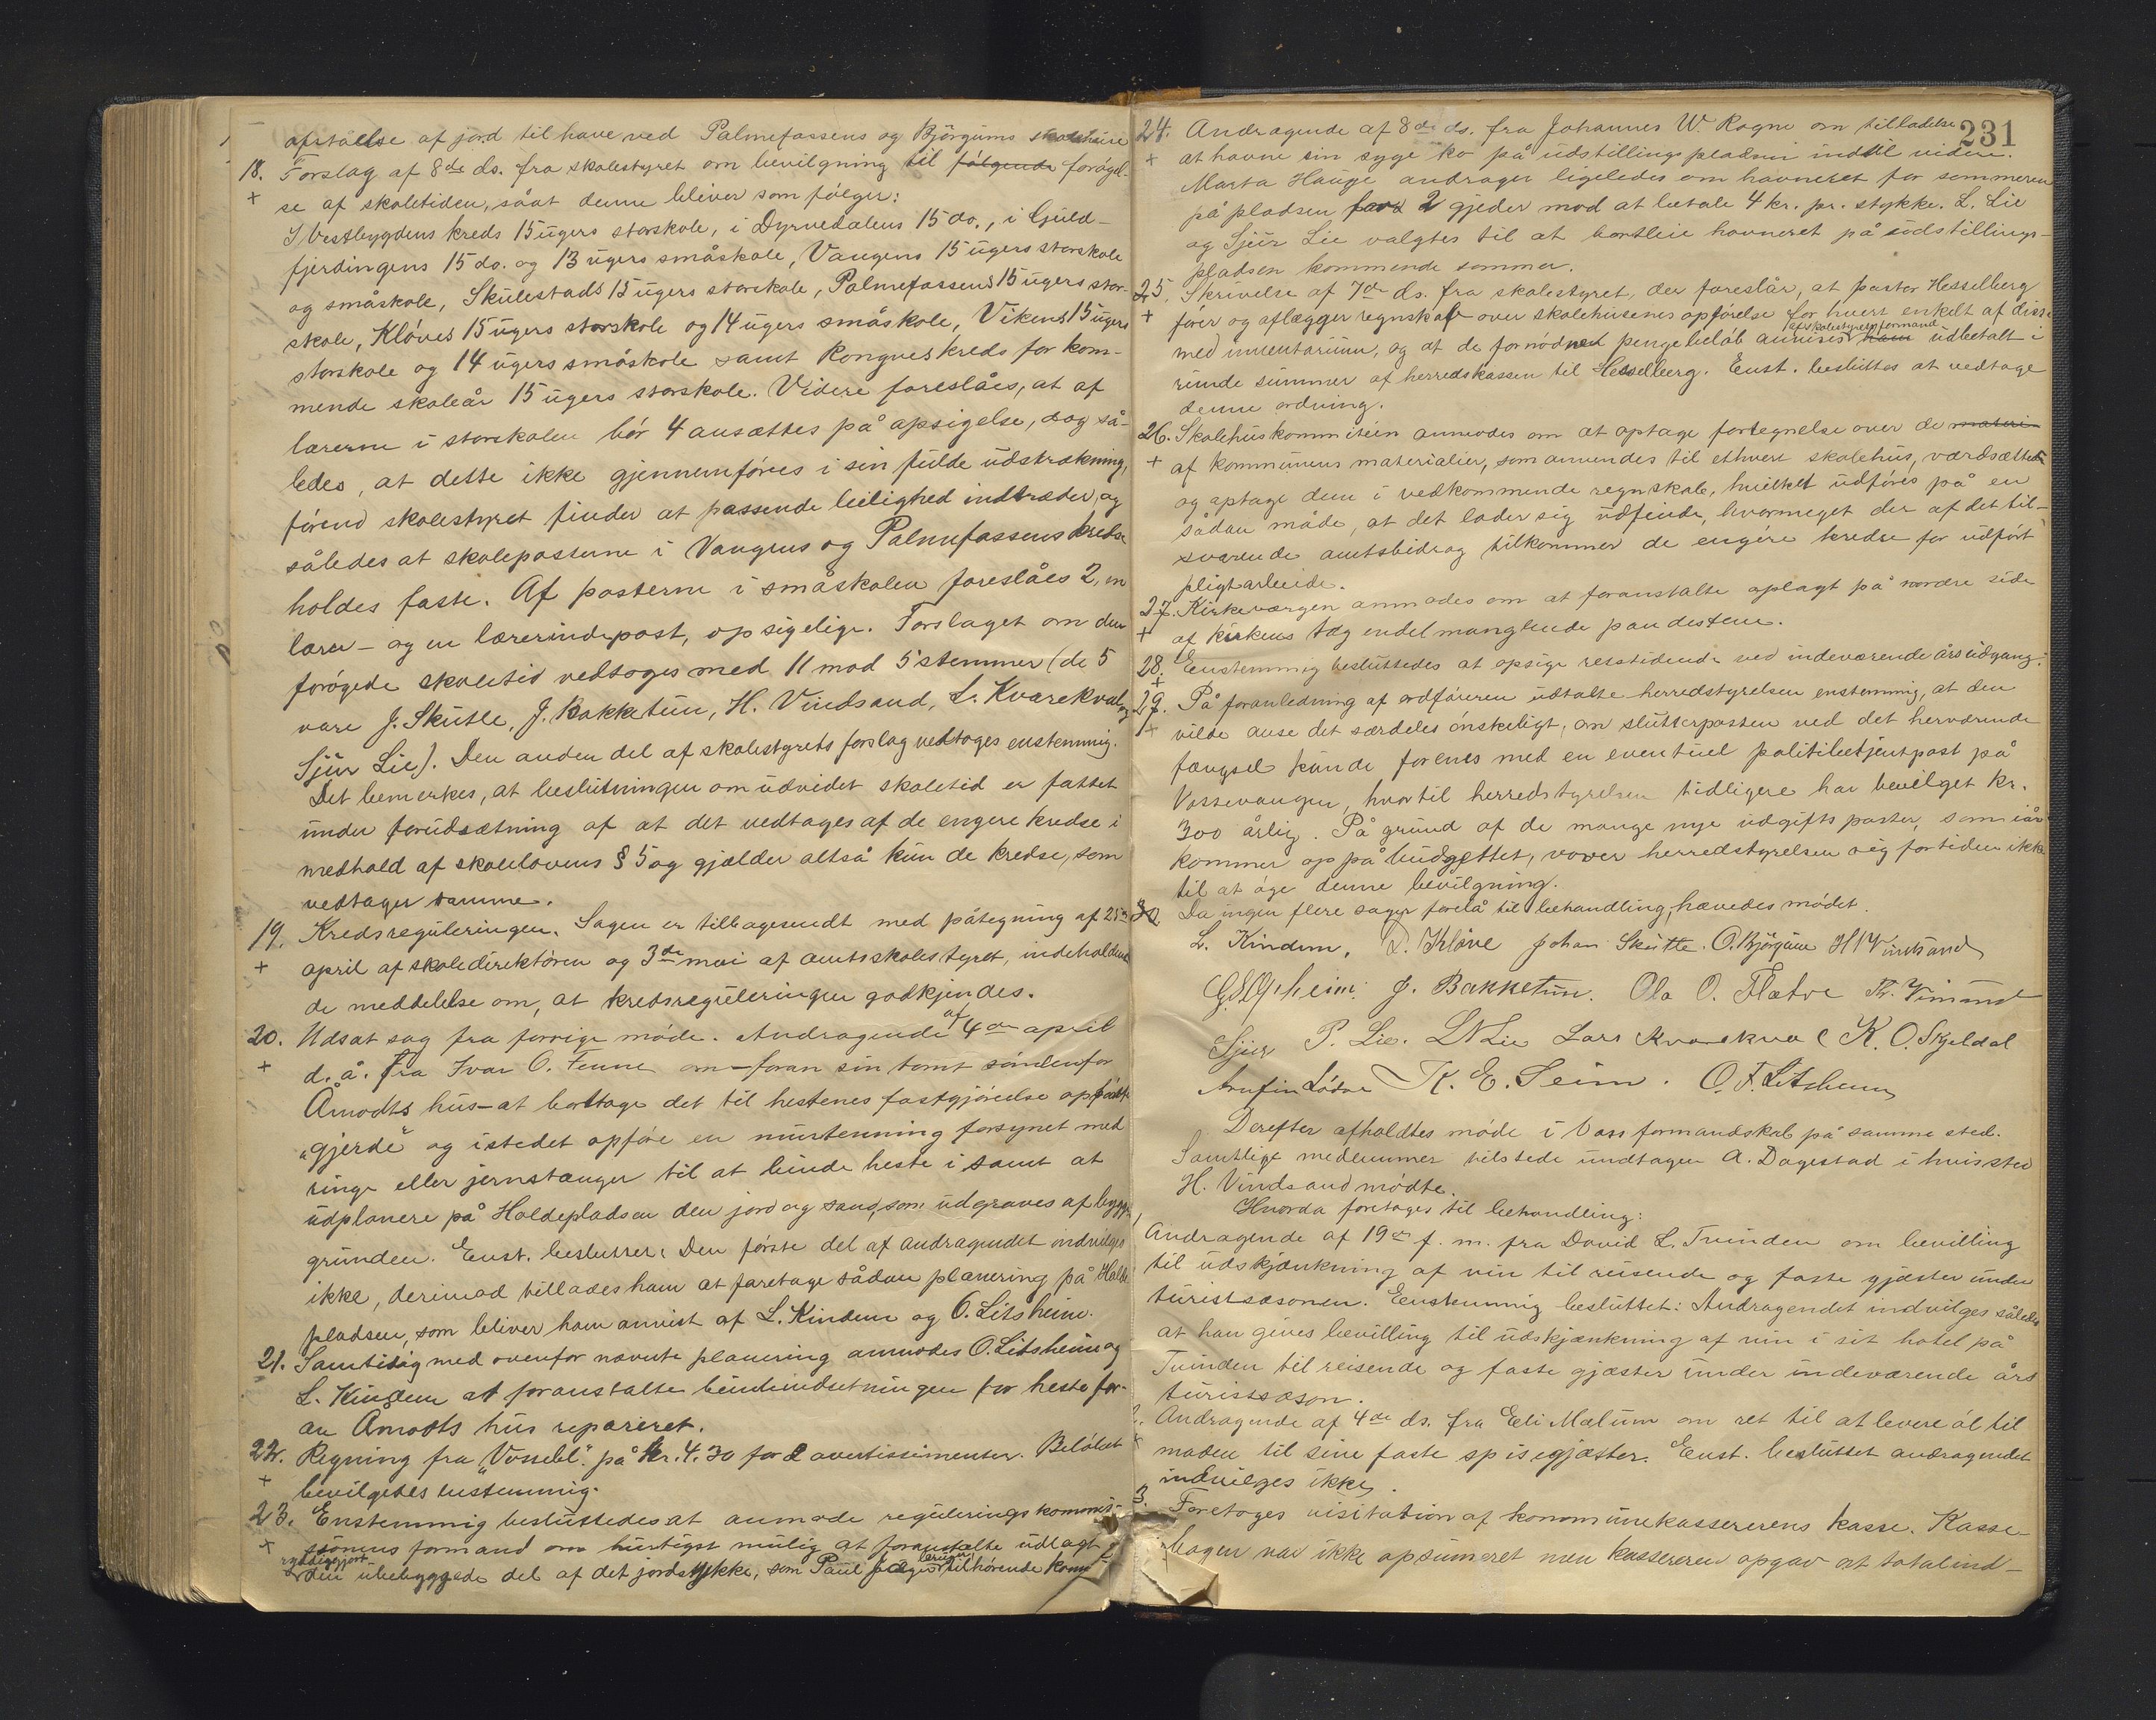 afståelse af jord til have ved Palmefossens og Bjørgums skolehuse
18. Forslag af 8de ds. fra skolestyret om bevilgning til følgende forøgel-
+ se af skoletiden, såat denne bliver som følger:
I Vestbygdens kreds 15 ugers storskole, i Dyrvedalens 15 do., i Guld-
fjerdingens 15 do. og 13 ugers småskole, Vangens 15 ugers storskole
og småskole, Skulestads 15 ugers storskole, Palmefossens 15 ugers stor-
skole, Kløves 15 ugers storskole og 14 ugers småskole, Vikens 15 ugers
storskole og 14 ugers småskole samt Rongves kreds for kom-
mende skoleår 15 ugers storskole. Videre foreslåes, at af
lærerne i storskolen bør 4 ansættes på opsigelse, dog så-
ledes, at dette ikke gjennemføres i sin fulde udstrækning,
førend skolestyret finder at passende leilighed indtræder, og
således at skoleposterne i Vangens og Palmefossens kredse
holdes faste. Af posterne i småskolen foreslåes 2, en
lærer- og en lærerindepost, opsigelige. Forslaget om den
forøgede skoletid vedtoges med 11 mod 5 stemmer (de 5
vare J. Skutle, J. Bakketun, H. Vindsand, L. Kvarekval og
Sjur Lie). Den anden del af skolestyrets forslag vedtoges enstemmig.
Det bemerkes, at beslutningen om udvidet skoletid er fattet
under forudsætning af at det vedtages af de engere kredse i
medhold af skolelovens § 5 og gjælder altså kun de kredse, som
vedtager samme.
19. Kredsreguleringen. Sagen er tilbagesendt med påtegning af 25de
+ april af skoledirektøren og 3de mai af amtsskolestyret, indeholden-
de meddelelse om, at kredsreguleringen godkjendes.
20. Udsat sag fra forrige møde. Andragende af 4de april
+ d. å. fra Ivar O. Fenne om - foran sin tomt søndenfor
Åmodts hus - at borttage det til hestenes fastgjørelse opførte
"gjerde" og istedet opføre en murtenning forsynet med
ringe eller jernstænger til at binde heste i samt at
udplanere på Holdepladsen den jord og sand, som udgraves af bygge-
grunden. Enst. besluttet: Den første del af andragendet indvilges
ikke, derimod tillades ham at foretage sådan planering på Holde-
pladsen, som bliver ham anvist af L. Kindem og O. Litsheim.
21. Samtidig med ovenfor nævnte planering anmodes O. Litsheim og
L. Kindem at foranstalte bindindretningen for heste for-
an Åmodts hus repareret.
22. Regning fra "Vossebl." på kr. 4.30 for 2 avertissimenter. Beløbet
+ bevilgedes enstemmig.
23. Enstemmig besluttedes at anmode reguleringskommis-
+ sionens formand om hurtigst mulig at foranstalte udlagt
ryddiggjort
den ubebyggede del af det jordstykke, som Paul bruger tilhørende kom-
231
24. Andragende af 8de ds. fra Johannes W. Rogne om tilladelse
+ at havne sin syge ko på udstillingspladsen indtil videre.
Marta Hauge andrager ligeledes om havneret for sommeren
på pladsen for 2 gjeder mod at betale 4 kr. pr. stykke. L. Lie
og Sjur Lie valgtes til at bortleie havneret på udstillings-
pladsen kommende sommer.
25. Skrivelse af 7de ds. fra skolestyret, der foreslår, at pastor Hesselberg
+ fører og aflægger regnskab over skolehusenes opførelse for hvert enkelt af disse
af skolestyrets formand
med inventarium, og at de fornødne pengebeløb anvises ham udbetalt i
runde summer af herredskassen til Hesselberg. Enst. besluttes at vedtage
denne ordning.
26. Skolehuskommiteen anmodes om at optage fortegnelse over de materi-
+ af kommunens materialier, som anvendes til ethvert skolehus, værdsætte
og optage dem i vedkommende regnskab, hvilket udføres på en
sådan måde, at det lader sig udfinde, hvormeget der af det til-
svarende amtsbidrag tilkommer de engere kredse for udført
pligtarbeide.
27. Kirkeværgen anmodes om at foranstalte oplagt på nordre side
+ af kirkens tag endel manglende pandestene.
28. Enstemmig besluttedes at opsige retstidende ved indeværende års udgang.
+
29. På foranledning af ordføreren udtalte herredstyrelsen enstemmig, at den
+ vilde anse det særdeles ønskeligt, om slutterposten ved det herværende
fængsel kunde forenes med en eventuel politibetjentpost på
Vossevangen, hvortil herredstyrelsen tidligere har bevilget kr.
300 årlig. På grund af de mange nye udgiftsposter, som iår
kommer op på budgettet, vover herredstyrelsen sig for tiden ikke
til at øge denne bevilgning.
30. Da ingen flere sager forelå til behandling, hævedes mødet.
L. Kindem, D. Kløve Johan Skutle. O. Bjørgum H Vindsand
J. Bakketun. Ola O. Flatve
Sjur P. Lie. L N Lie Lars Kvarekval K. O. Skjeldal
K. E. Seim. O. F. Litsheim
Derefter afholdtes møde i Voss formandskab på samme sted.
Samtlige medlemmer tilstede undtagen A. Dagestad i hvis sted
H. Vindsand mødte.
Hvorda foretoges til behandling:
Andragende af 19de f. m. fra David L. Tvinden om bevilling
til udskjænkning af vin til reisende og faste gjæster under
turistsæsonen. Eenstemmig besluttet: Andragendet indvilges således
at han gives bevilling til udskjænkning af vin i sit hotel på
Tvinden til reisende og faste gjæster under indeværende års
turistsæson.
2. Andragende af 4de ds. fra Eli Mælum om ret til at levere øl til
maden til sine faste spisegjæster. Enst. besluttet andragendet
indvilges ikke.
3. Foretoges visitation af kommunekassererens kasse. Kasse-
bogen var ikke opsummeret men kassereren opgav at totalind-